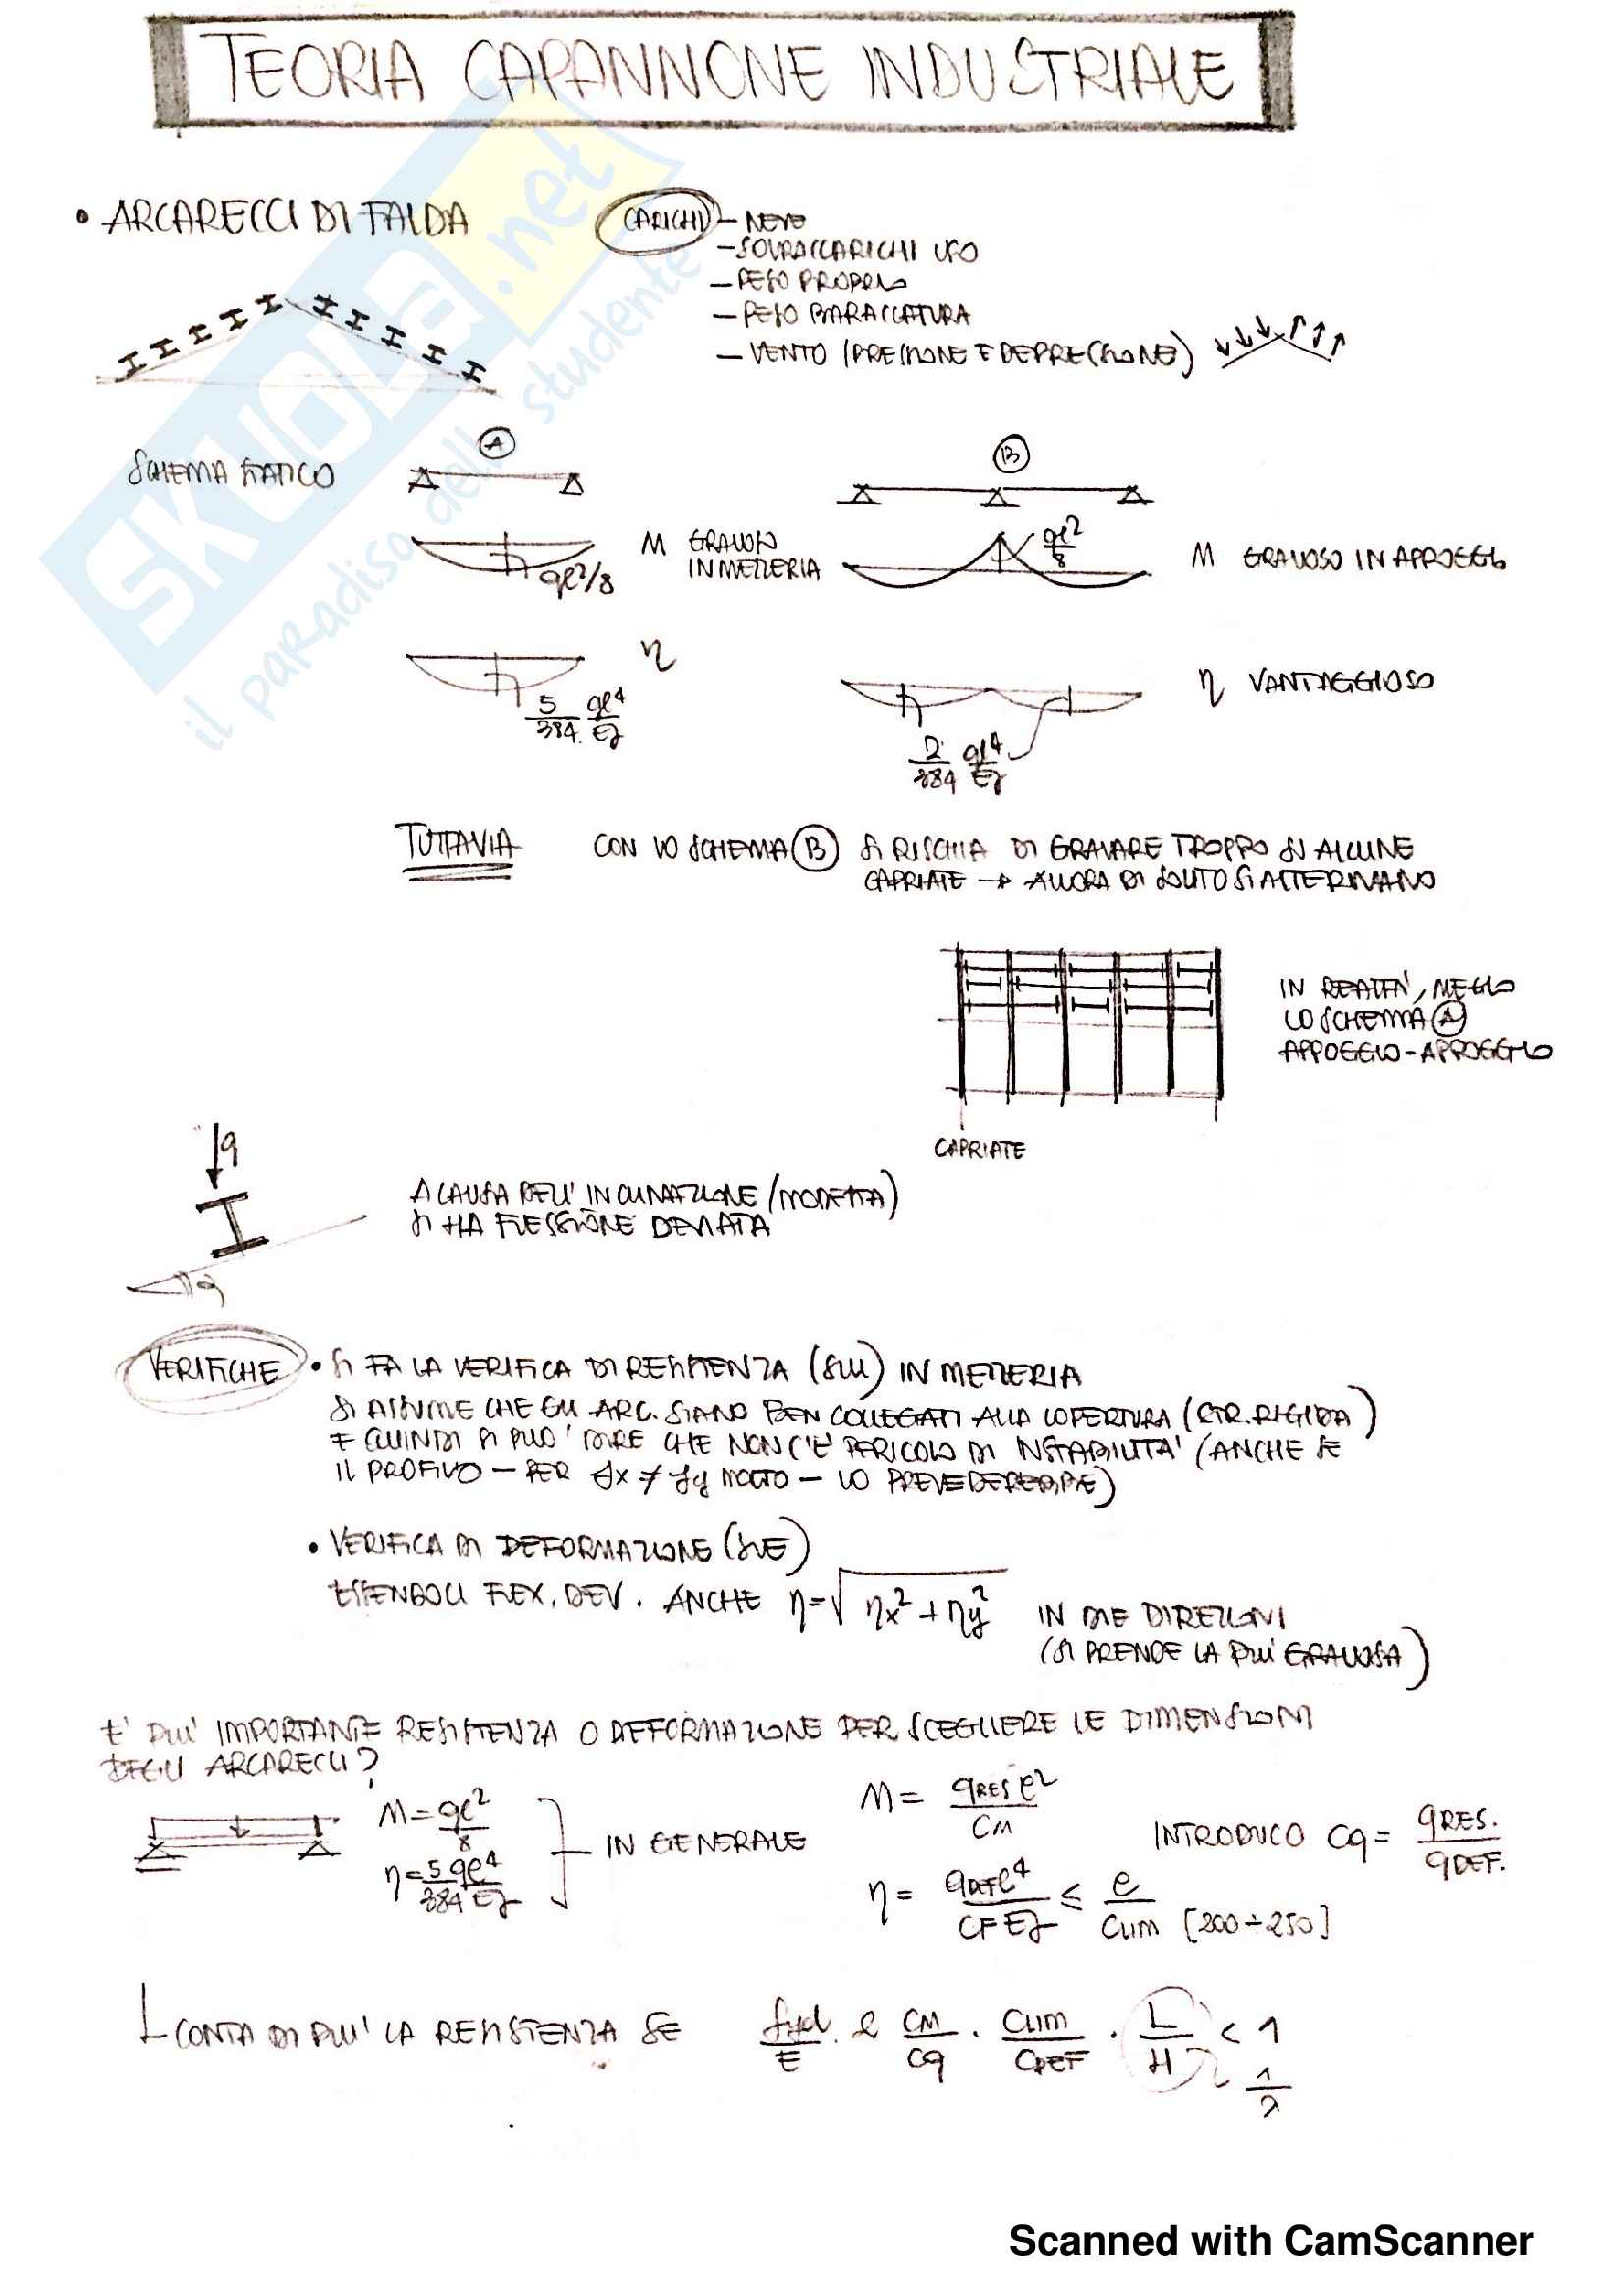 TEORIA CAPANNONE INDUSTRIALE
• ARCARECCI DI FALDA
CARICHI – NEVE
– SOVRACCARICHI USO
– PESO PROPRIO
– PESO BARACCATURA
– VENTO (PRESSIONE E DEPRESSIONE)
SCHEMA STATICO
A
B
M GRAVOSO IN MEZZERIA
ql²/8
ql²/8
M GRAVOSO IN APPOGGIO
η
5/384 ql⁴/EJ
η VANTAGGIOSO
2/384 ql⁴/EJ
TUTTAVIA CON LO SCHEMA B SI RISCHIA DI GRAVARE TROPPO SU ALCUNE
CAPRIATE → ALLORA DI SOLITO SI ALTERNANO
IN REALTA', MEGLIO
LO SCHEMA A
APPOGGIO-APPOGGIO
CAPRIATE
q
A CAUSA DELL'INCLINAZIONE (MODESTA)
SI HA FLESSIONE DEVIATA
VERIFICHE • SI FA LA VERIFICA DI RESISTENZA (SLU) IN MEZZERIA
SI ASSUME CHE GLI ARC. SIANO BEN COLLEGATI ALLA COPERTURA (STR. RIGIDA)
E QUINDI SI PUO' DIRE CHE NON C'E' PERICOLO DI INSTABILITA' (ANCHE SE
IL PROFILO – PER Jx ≠ Jy MOLTO – LO PREVEDEREBBE)
• VERIFICA DI DEFORMAZIONE (SLE)
ESSENDOCI FLEX. DEV. ANCHE η=√ηx²+ηy² IN DUE DIREZIONI
(SI PRENDE LA PIU' GRAVOSA)
E' PIU' IMPORTANTE RESISTENZA O DEFORMAZIONE PER SCEGLIERE LE DIMENSIONI
DEGLI ARCARECCI?
M=ql²/8
η=5/384 ql⁴/EJ
IN GENERALE
M= qRES l²/CM
η= qDEF l⁴/CF EJ ≤ l/CLIM [200÷250]
INTRODUCO Cq= qRES./qDEF.
CONTA DI PIU' LA RESISTENZA SE fyd/E · 2 CM/Cq · CLIM/CDEF · L/H < 1
SKUOLA.net
il paradiso dello studente
Scanned with CamScanner